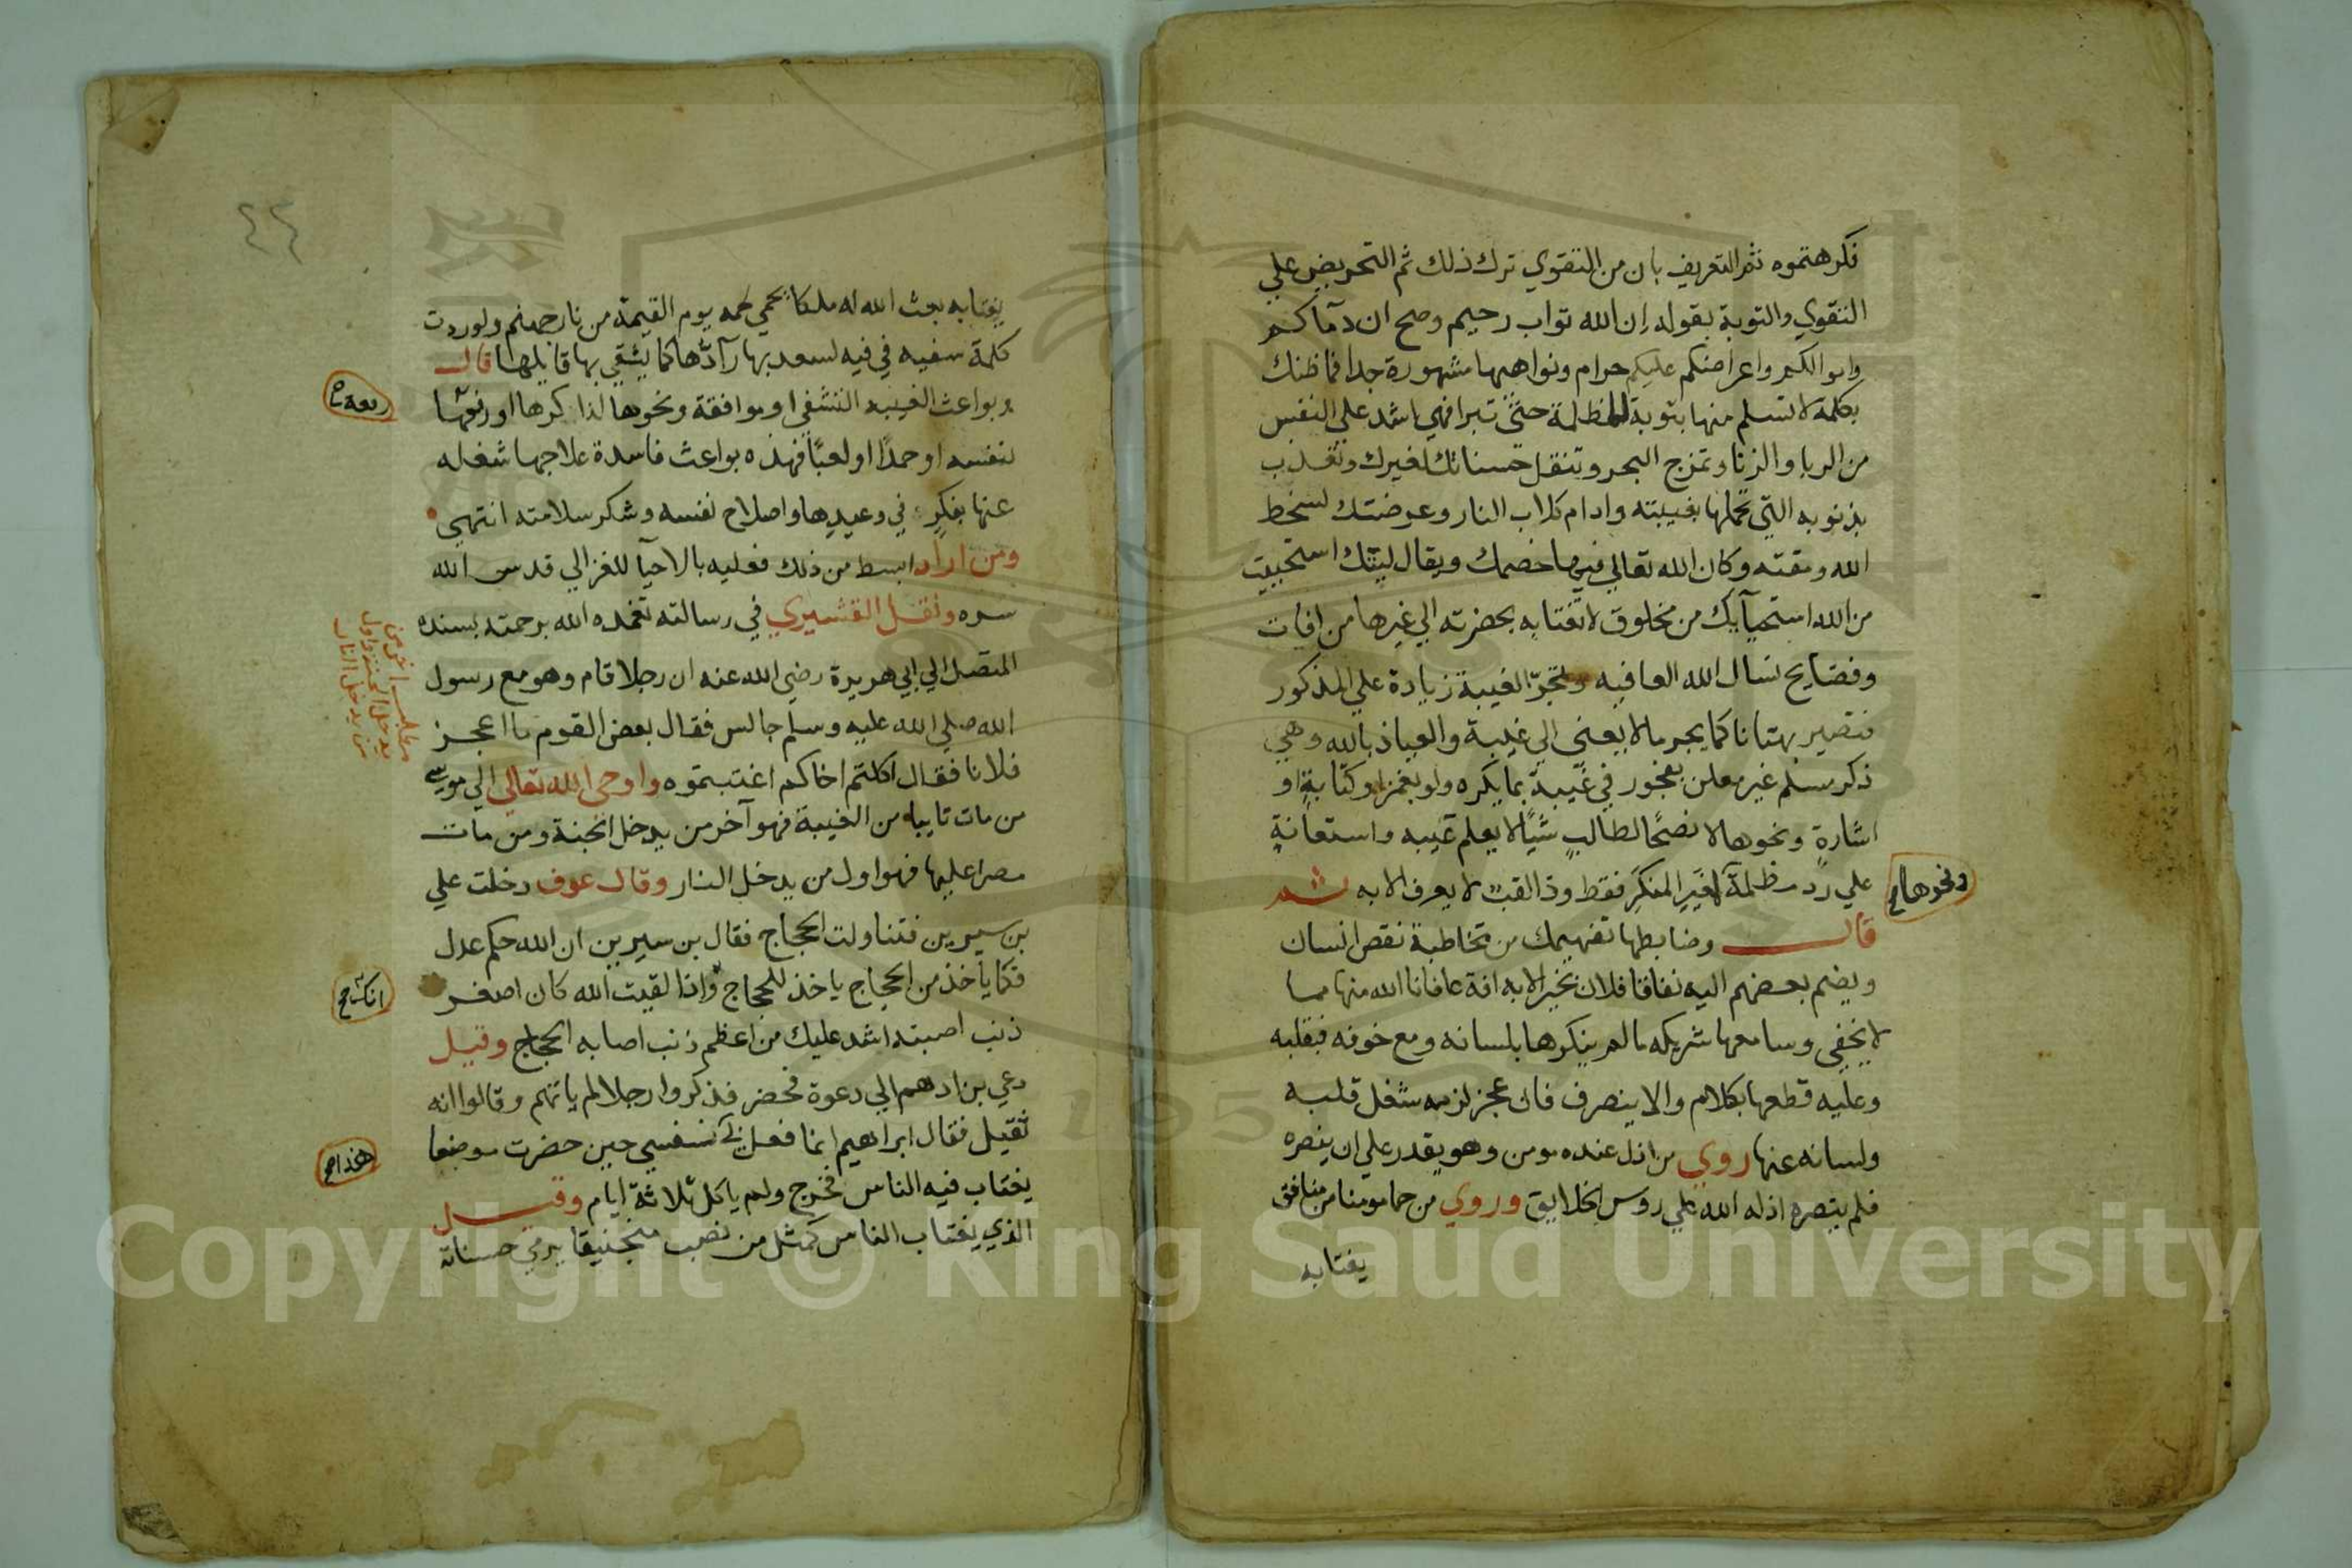 فكرهتموه ثم التعريف بان من التقوي ترك ذلك ثم التحريض علي
التقوي والتوبة بقوله ان الله تواب رحيم وصح ان دماكم
واموالكم واعراضكم عليكم حرام ونواهيها مشهورة جدا فما ظنك
بكلمة لا تسلم منها بتوبة لمظلمة حتى تبرا فهي اشد علي النفس
من الربا والزنا وتمزج البحر وتنقل حسناتك لغيرك وتعذب
بذنوبه التي تحملها بغيبته وادام كلاب النار وعرضتك لسخط
الله ومقته وكان الله تعالي فيها خصمك ويقال ليتك استحييت
من الله استحيآيك من مخلوق لا تغتابه بحضرته الي غيرها من افات
وفضايح نسال الله العافيه وتجرّ الغيبة زيادة علي المذكور
فتصير بهتانا كما يجر ما لا يعني الي غيبة والعياذ بالله وهي
ذكر مسلم غير معلن بفجور في غيبة بما يكره ولو بغمز او كتابة او
اشارة ونحوها لا نصحًا لطالب شيًا لا يعلم عيبه واستعانة
علي رد مظلمة لغير المنكر فقط وذا لقب لا يعرف الا به ثم
ونحوها صح
قال وضابطها تفهيمك من تخاطبة نقص انسان
ويضم بعضهم اليه نفاقا فلان بخير الا به افة عافانا الله منها مما
لا يخفي وسامعها شريكه ما لم ينكرها بلسانه ومع خوفه فبقلبه
وعليه قطعها بكلام والا ينصرف فان عجز لزمه شغل قلبه
ولسانه عنها روي من اذل عنده مومن وهو يقدر علي ان ينصره
فلم ينصره اذله الله علي روس الخلايق وروي من حما مومنا من منافق
يغتابه
٤٤
يغتابه بعث الله له ملكا يحمي لحمه يوم القيمة من نار جهنم ولو ردت
كلمة سفيه في فيه لسعد بها رآدّها كما يشقي بها قايلها قال
وبواعث الغيبه التشفي او موافقة ونحوها لذاكرها او رفعها
لنفسه او حمدًا او لعبًا فهذه بواعث فاسدة علاجها شغله
عنها بفكر في وعيدها واصلاح نفسه وشكر سلامته انتهي
ومن اراد ابسط من ذلك فعليه بالاحيآ للغزالي قدس الله
سره ونقل القشيري في رسالته تغمده الله برحمته بسنده
المتصل الي ابي هريرة رضي الله عنه ان رجلا قام وهو مع رسول
الله صلي الله عليه وسلم جالس فقال بعض القوم ما اعجز
فلانا فقال اكلتم اخاكم اغتبتموه واوحي الله تعالي الي موسي
من مات تايبا من الغيبة فهو آخر من يدخل الجنة ومن مات
مصرا عليها فهو اول من يدخل النار وقال عوف دخلت علي
مطلب اخر من
يدخل الجنة واول
من يدخل النار
بن سيرين فتناولت الحجاج فقال بن سيرين ان الله حكم عدل
فكما ياخذ من الحجاج ياخذ للحجاج واذا لقيت الله كان اصغر
انك صح
ذنب اصبته اشد عليك من اعظم ذنب اصابه الحجاج وقيل
دعي بن ادهم الي دعوة فحضر فذكروا رجلا لم ياتهم وقالوا انه
ثقيل فقال ابراهيم انما فعل بي نفسي حين حضرت موضعا
هذا صح
يغتاب فيه الناس فخرج ولم ياكل ثلاثة ايام وقيل
الذي يغتاب الناس كمثل من نصب منجنيقا يرمي حسناته
Copyright © King Saud University
195